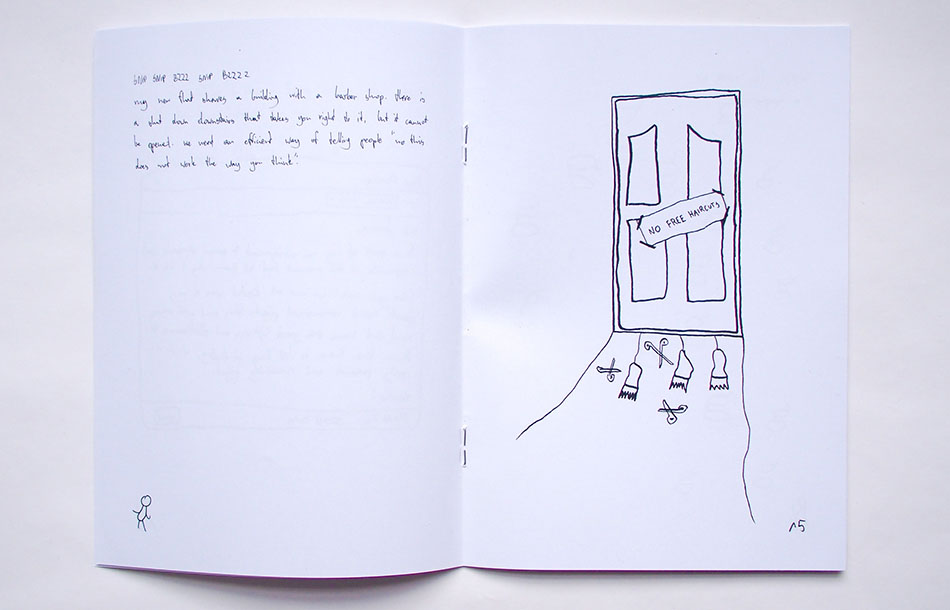 SNIP SNIP BZZZ SNIP BZZZZ
my new flat shares a building with a barber shop. there is
a shut down downstairs that takes you right to it, but it cannot
be opened. we need an efficient way of telling people "no this
does not work the way you think".
NO FREE HAIRCUTS
15